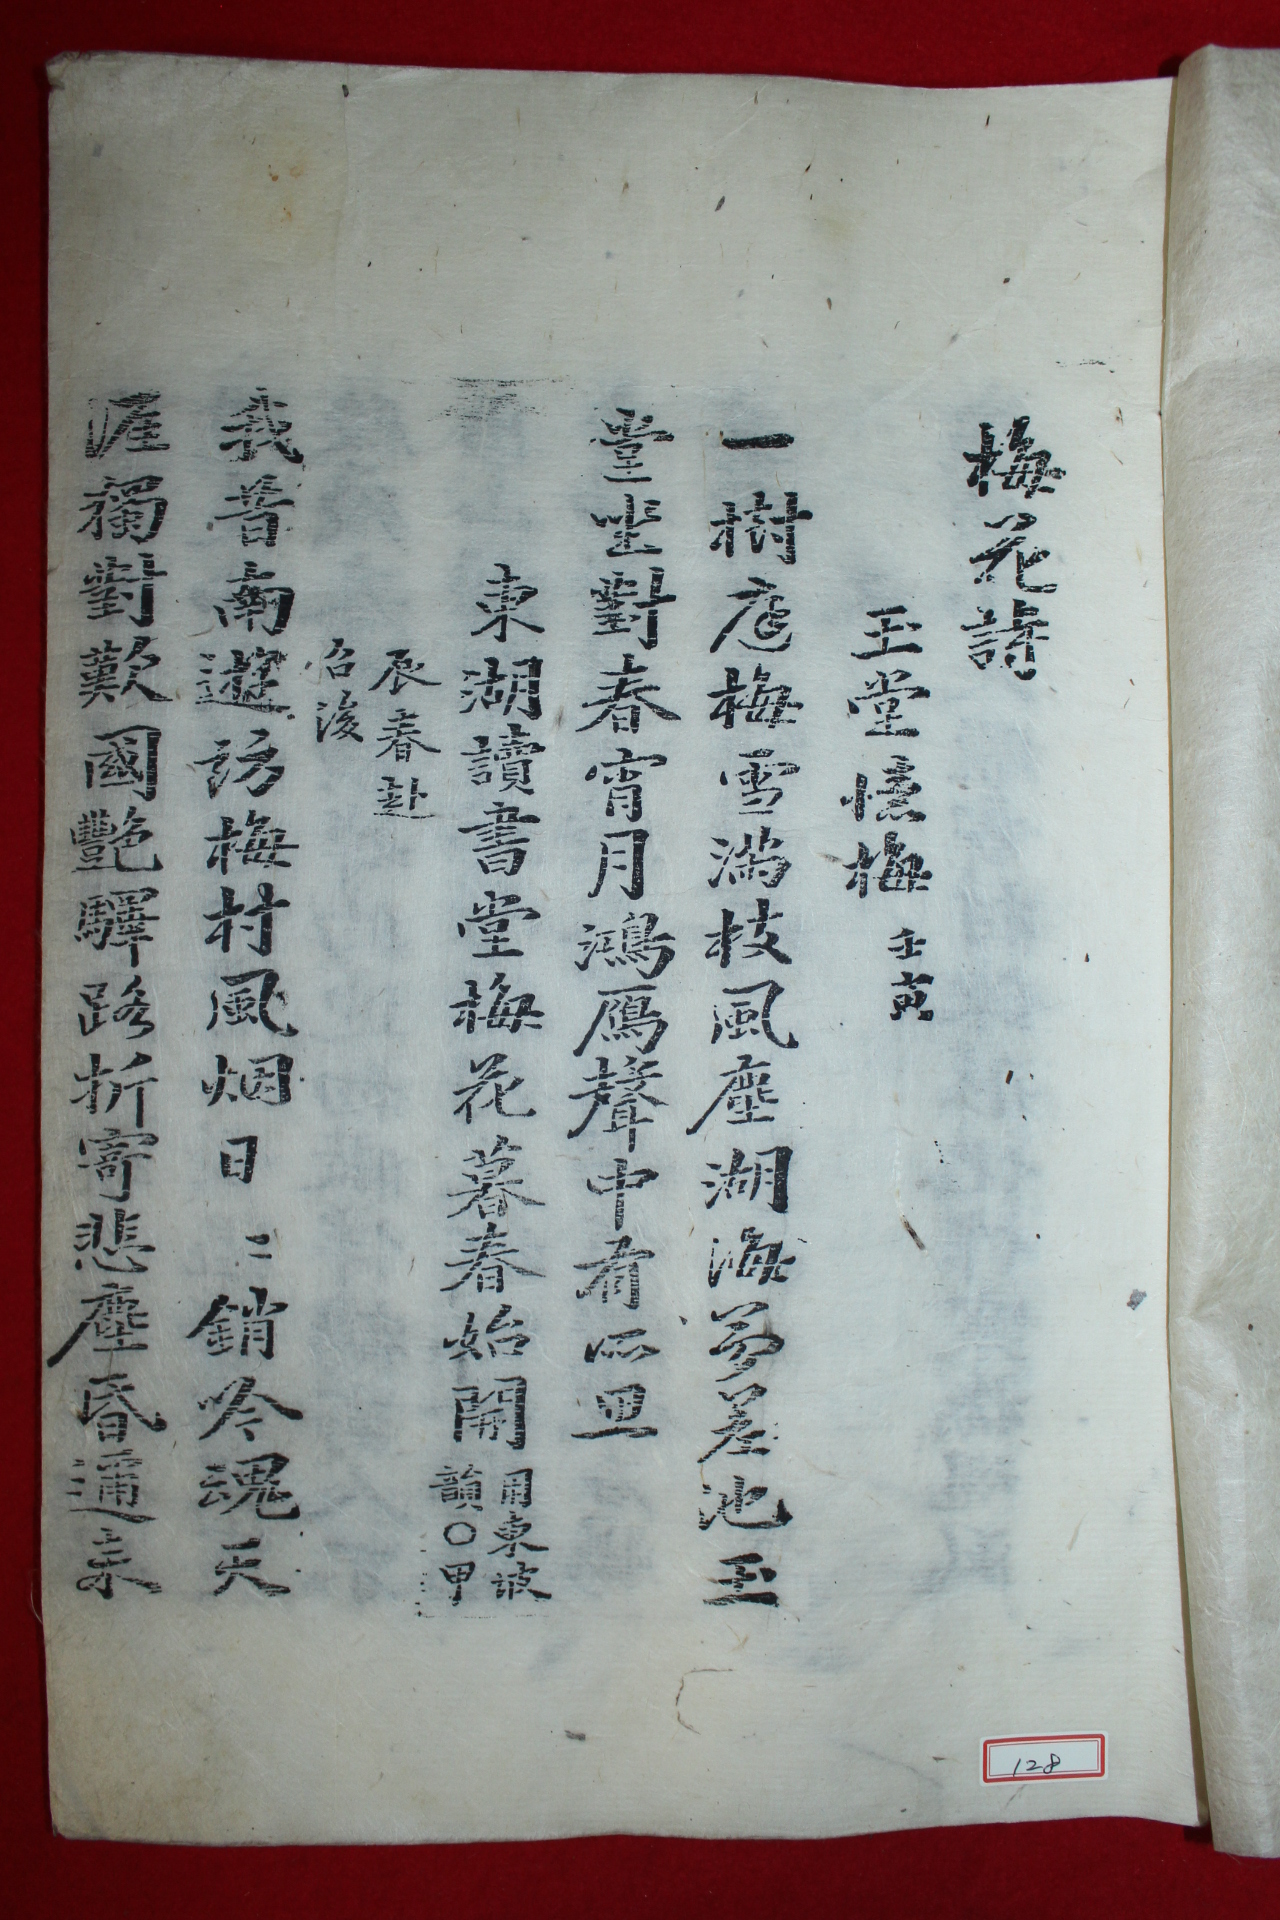 梅花詩
玉堂憶梅 壬寅
一樹庭梅雪滿枝風塵湖海夢差池玉
堂坐對春宵月鴻鴈聲中有所思
東湖讀書堂梅花暮春始開 用東坡韻○甲
辰春赴召後
我昔南遊訪梅村風烟日〻銷吟魂天
涯獨對歎國艷驛路折寄悲塵昏邇來
128